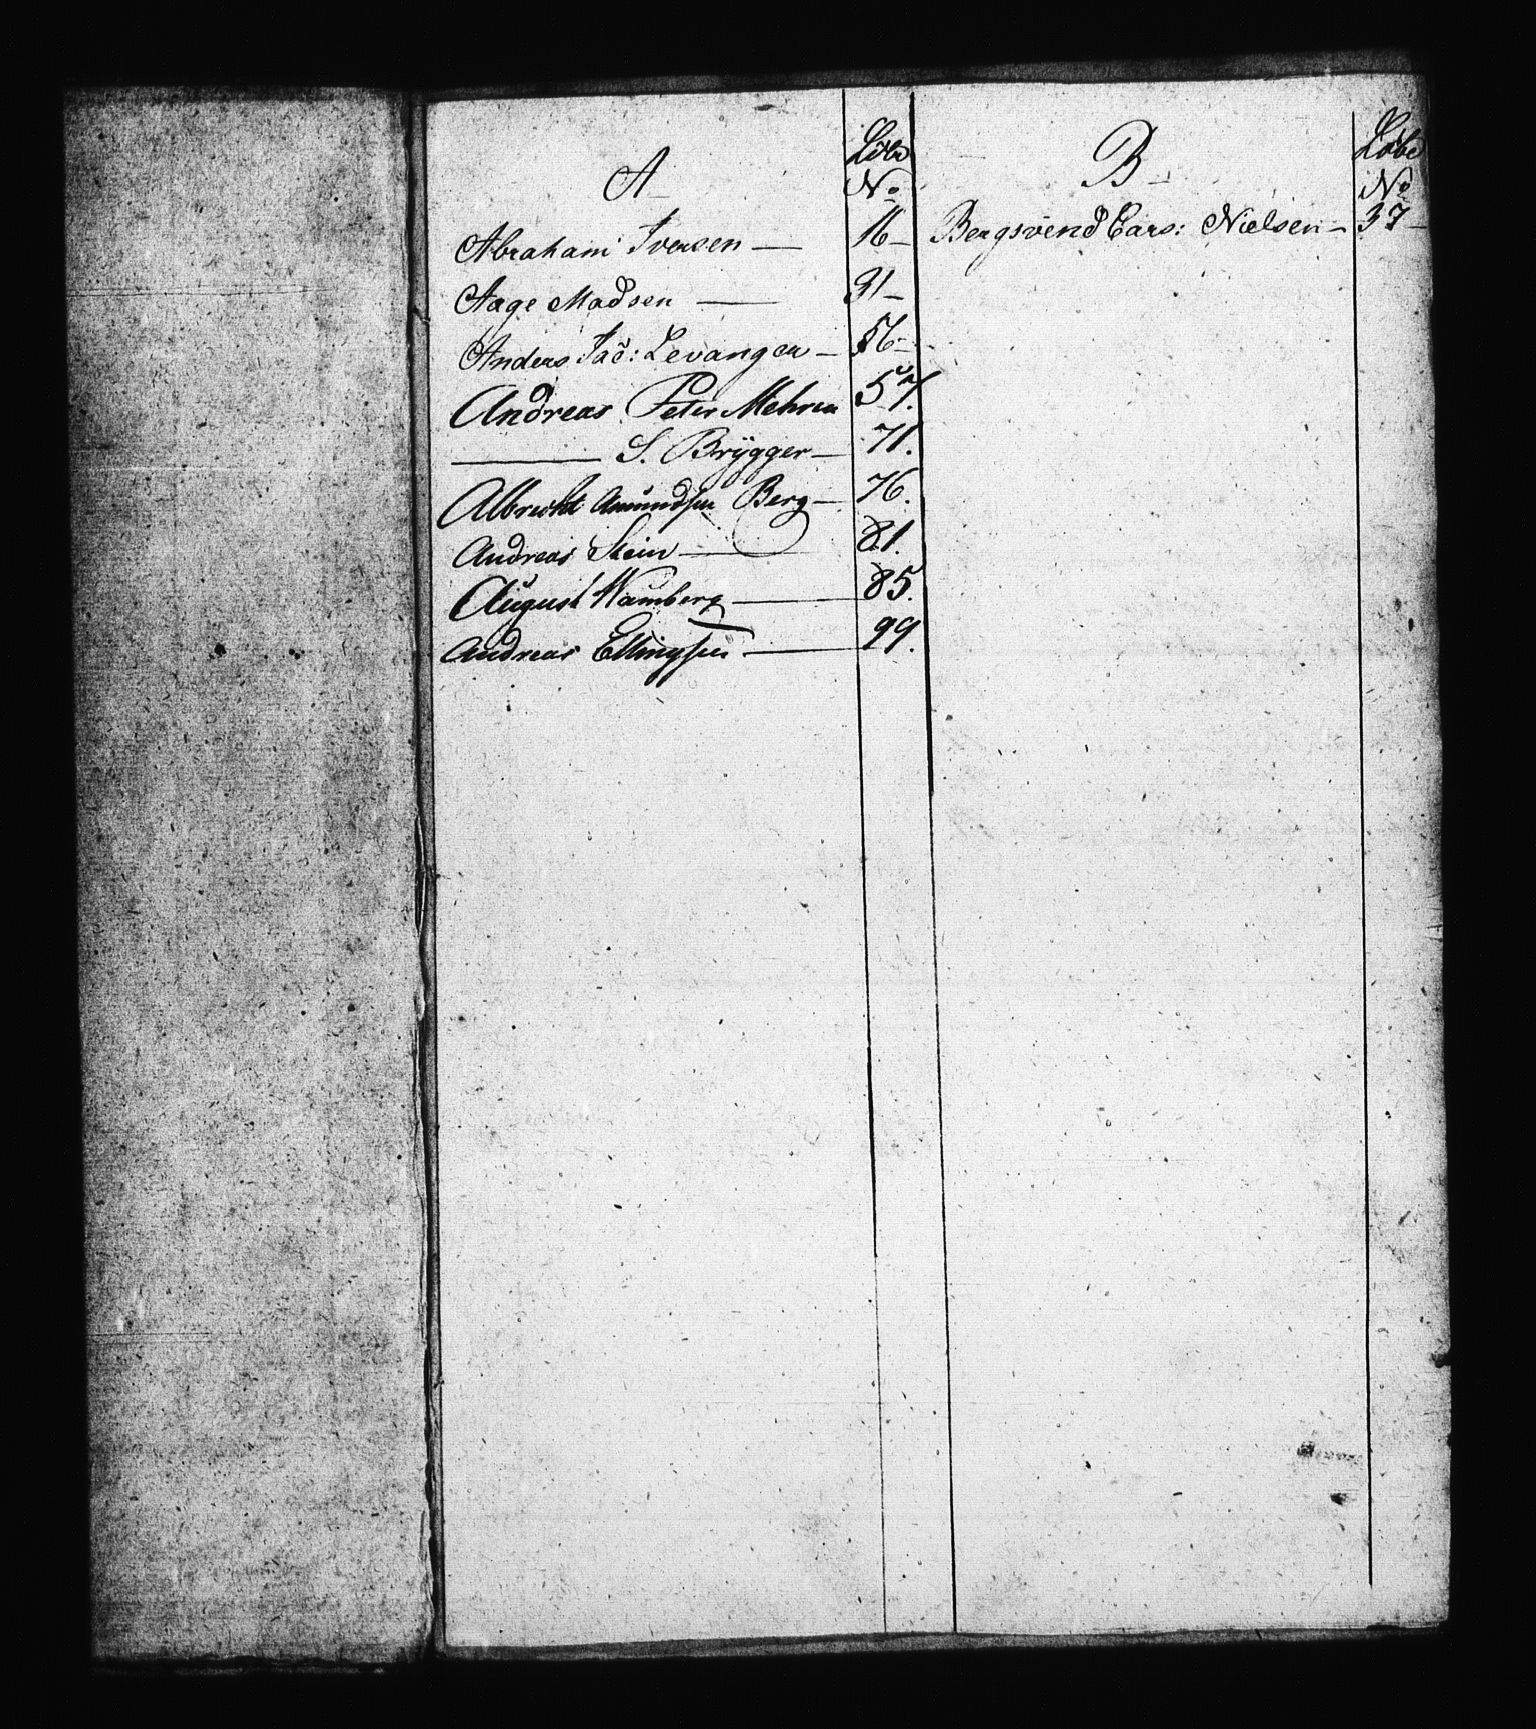 A
Løbe
No
Abraham Iversen — 16 —
Aage Madsen — 31 —
Anders Jac: Levanger — 56 —
Andreas Peter Mehren 57.
——— S. Brÿgger — 71.
Albrecht Amundsen Berg — 76.
Andreas Stein — 81.
August Wamberg — 85.
Andreas Ellingsen — 99.
B
Løbe
No
Bergsvend Lars: Nielsen — 37 —